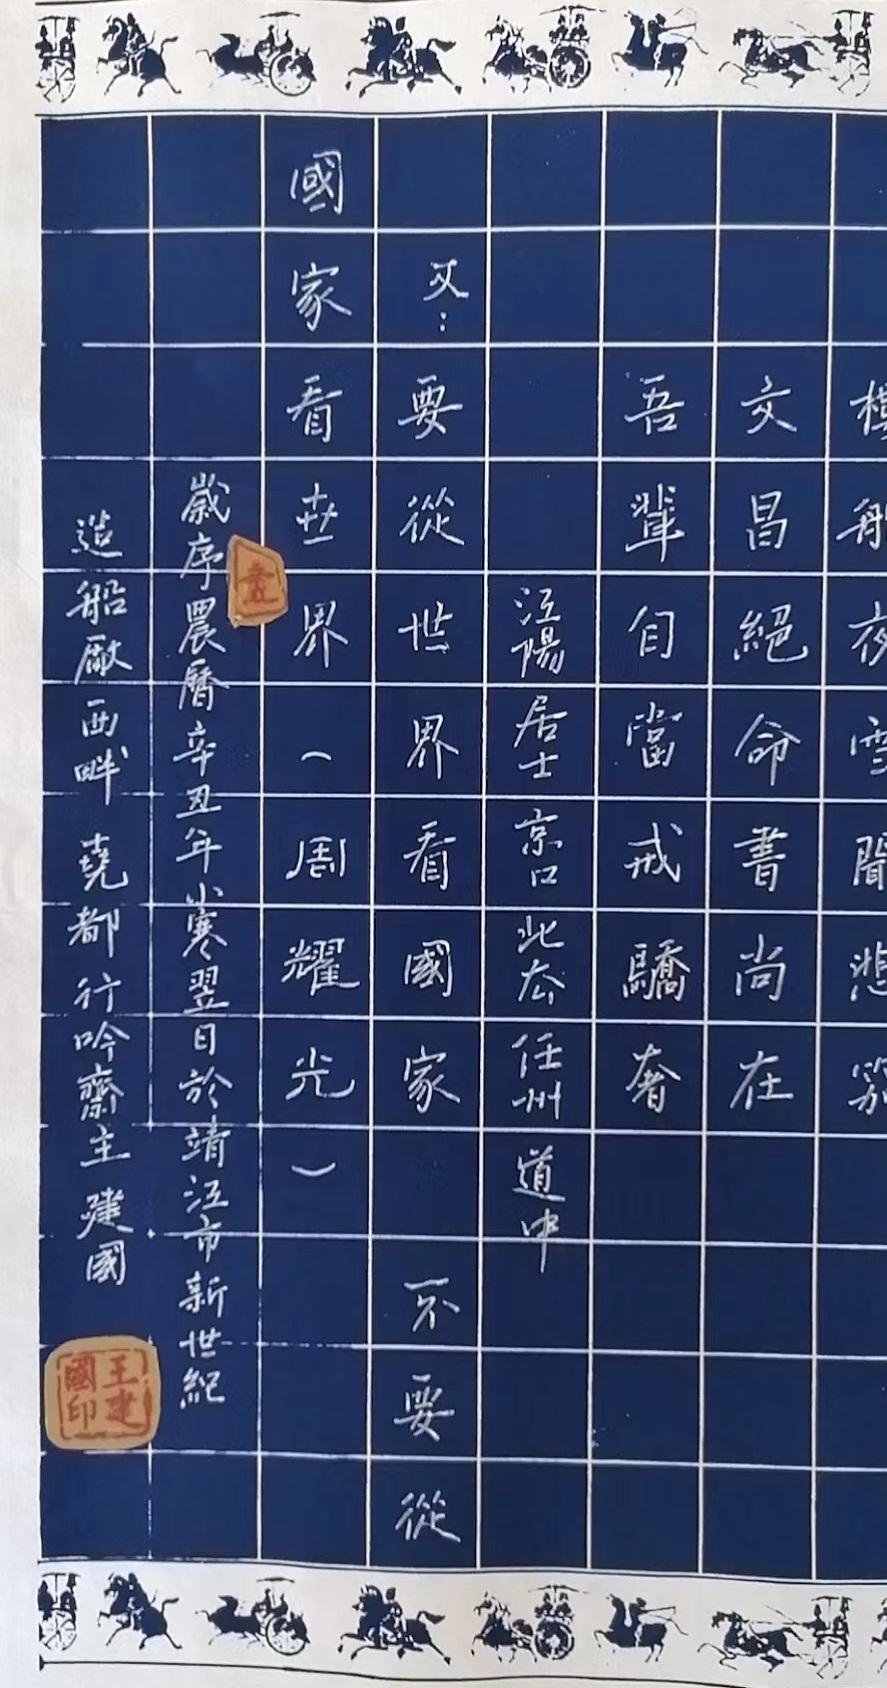 樓船夜雪聞悲笳
文昌絕命書尚在
吾輩自當戒驕奢
江陽居士京口北古任州道中
又:要從世界看國家 不要從
國家看世界(周耀光)
歲序農曆辛丑年小寒翌日於靖江市新世紀
造船廠西畔 堯都行吟齋主建國
王建國印